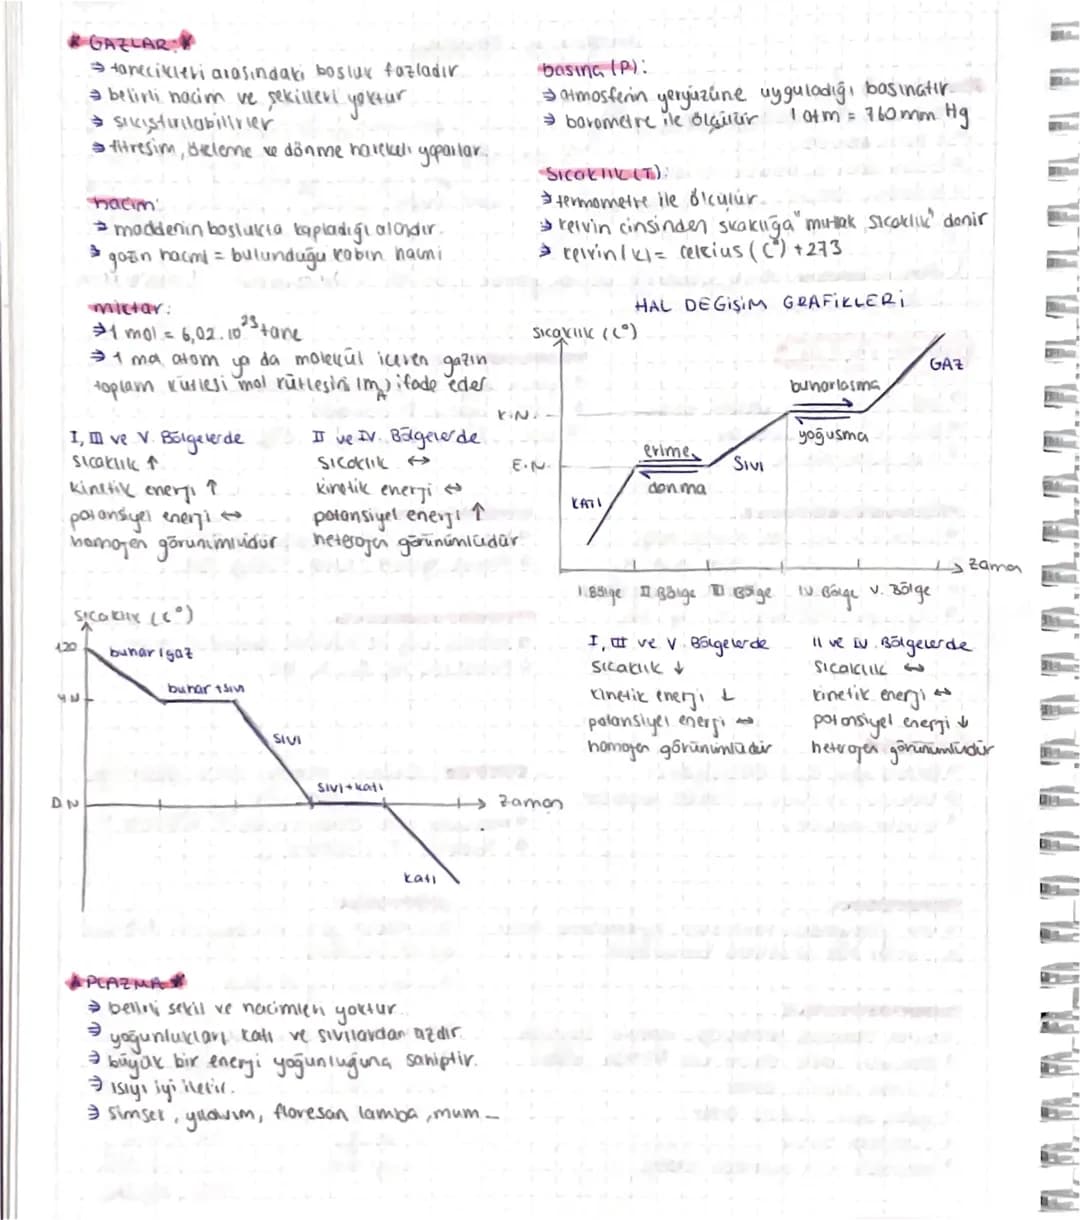 * GAZLAR *
→ tanecikleri arasındaki boşluk fazladır.
→ belirli hacim ve şekilleri yoktur
→ sıkıştırılabilirler
→ titreşim, öteleme ve dönme hareketi yaparlar.
hacim:
→ maddenin boşlukta kapladığı alandır.
→ gazın hacmi = bulunduğu kabın hacmi
miktar:
→ 1 mol = 6,02.10²³ tane
→ 1 mol atom ya da molekül içeren gazın
toplam kütlesi mol kütlesini (mA) ifade eder.
basınç (P):
→ atmosferin yeryüzüne uyguladığı basınçtır.
→ barometre ile ölçülür 1 atm = 760 mm Hg
Sıcaklık (T):
→ termometre ile ölçülür.
→ kelvin cinsinden sıcaklığa "mutlak sıcaklık" denir
→ kelvin (K) = celcius (C°) + 273
HAL DEĞİŞİM GRAFİKLERİ
sıcaklık (C°)
GAZ
buharlaşma
K.N.
yoğuşma
erime
E.N.
SIVI
donma
KATI
zaman
I. Bölge II Bölge III Bölge IV. Bölge V. Bölge
I, III ve V. Bölgelerde
sıcaklık ↑
kinetik enerji ↑
potansiyel enerji ↔
homojen görünümlüdür
II ve IV. Bölgelerde
sıcaklık ↔
kinetik enerji ↔
potansiyel enerji ↑
heterojen görünümlüdür
Sıcaklık (C°)
120
buhar (gaz
buhar + sıvı
SIVI
sıvı + katı
D.N
zaman
katı
I, III ve V. Bölgelerde
sıcaklık ↓
kinetik enerji ↓
potansiyel enerji ↔
homojen görünümlüdür
II ve IV. Bölgelerde
sıcaklık ↔
kinetik enerji ↔
potansiyel enerji ↓
heterojen görünümlüdür
* PLAZMA *
→ belirli şekil ve hacimleri yoktur.
→ yoğunlukları katı ve sıvılardan azdır.
→ büyük bir enerji yoğunluğuna sahiptir.
→ ısıyı iyi iletir.
→ Şimşek, yıldırım, floresan lamba, mum